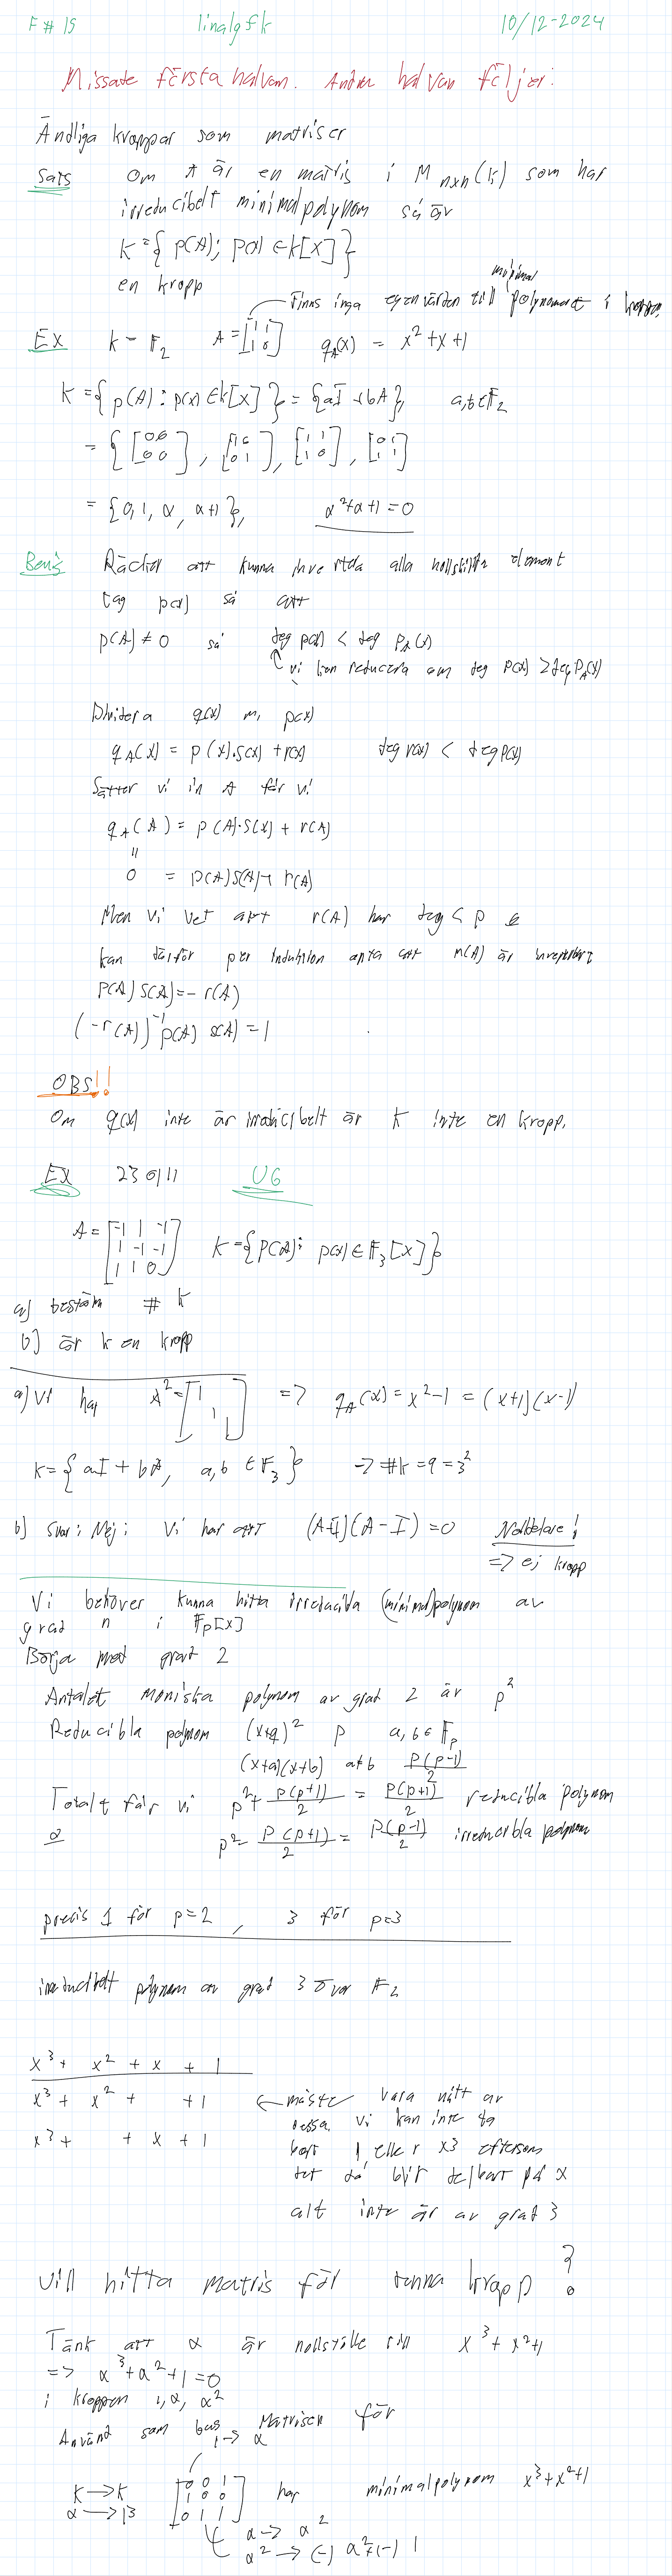 F#15 linalgfk 10/12-2024
Missade första halvan. Andra halvan följer:
Ändliga kroppar som matriser
Sats Om A är en matris i M_{n×n}(k) som har
irreducibelt minimalpolynom så är
K={p(A); p(x) ∈ k[x]}
en kropp
minimal
Finns inga egenvärden till polynomet i kroppen
EX k = F_2 A=[1 1; 1 0] q_A(x) = x^2+x+1
K={p(A): p(x) ∈ k[x]} = {aI + bA}, a,b∈F_2
= {[0 0; 0 0], [1 0; 0 1], [1 1; 1 0], [0 1; 1 1]}
= {0, 1, α, α+1}, α^2+α+1=0
Bevis Räcker att kunna invertera alla nollskilda element
tag p(x) så att
p(A) ≠ 0 så deg p(x) < deg p_A(x)
vi kan reducera om deg p(x) ≥ deg p_A(x)
Dividera q(x) m, p(x)
q_A(x) = p(x)·s(x) + r(x) deg r(x) < deg p(x)
Sätter vi in A får vi
q_A(A) = p(A)·s(x) + r(A)
=
0 = p(A)s(A)+r(A)
Men vi vet att r(A) har deg < p &
kan därför per induktion anta att r(A) är inverterbart
p(A)s(A) = -r(A)
(-r(A))^{-1} p(A) s(A) = 1
OBS!!
Om q(x) inte är irreducibelt är K inte en kropp.
EX 230111 U6
A=[-1 1 -1; 1 -1 -1; 1 1 0] K={p(A): p(x) ∈ F_3[x]}
a) bestäm # K
b) är K en kropp
a) Vi har A^2=[1 1 1] => q_A(x) = x^2-1 = (x+1)(x-1)
K={aI + bA, a,b ∈ F_3} -> #K=9=3^2
b) Svar: Nej: Vi har att (A+I)(A-I)=0 Nolldelare!
=> ej kropp
Vi behöver kunna hitta irreducibla (minimal)polynom av
grad n i F_p[x]
Börja med grad 2
Antalet moniska polynom av grad 2 är p^2
Reducibla polynom (x+a)^2 p a,b∈F_p
(x+a)(x+b) a≠b p(p-1)/2
Totalt får vi p^2+ p(p+1)/2 = p(p+1)/2 reducibla polynom
& p^2 - p(p+1)/2 = p(p-1)/2 irreducibla polynom
precis 1 för p=2, 3 för p=3
irreducibelt polynom av grad 3 över F_2
x^3 + x^2 + x + 1
x^3 + x^2 + +1 <- måste vara nått av
x^3 + + x + 1 dessa. vi kan inte ta
bort 1 eller x3 eftersom
det då blir delbart på x
alt inte är av grad 3
Vill hitta matris för denna kropp?
Tänk att α är nollställe till x^3+x^2+1
=> α^3+α^2+1=0
i kroppen 1, α, α^2
Använd som bas Matrisen för
1 -> α
K -> K [0 0 1; 1 0 0; 0 1 1] har minimalpolynom x^3+x^2+1
α -> β
α -> α^2
α^2 -> (-) α^2+(-) 1